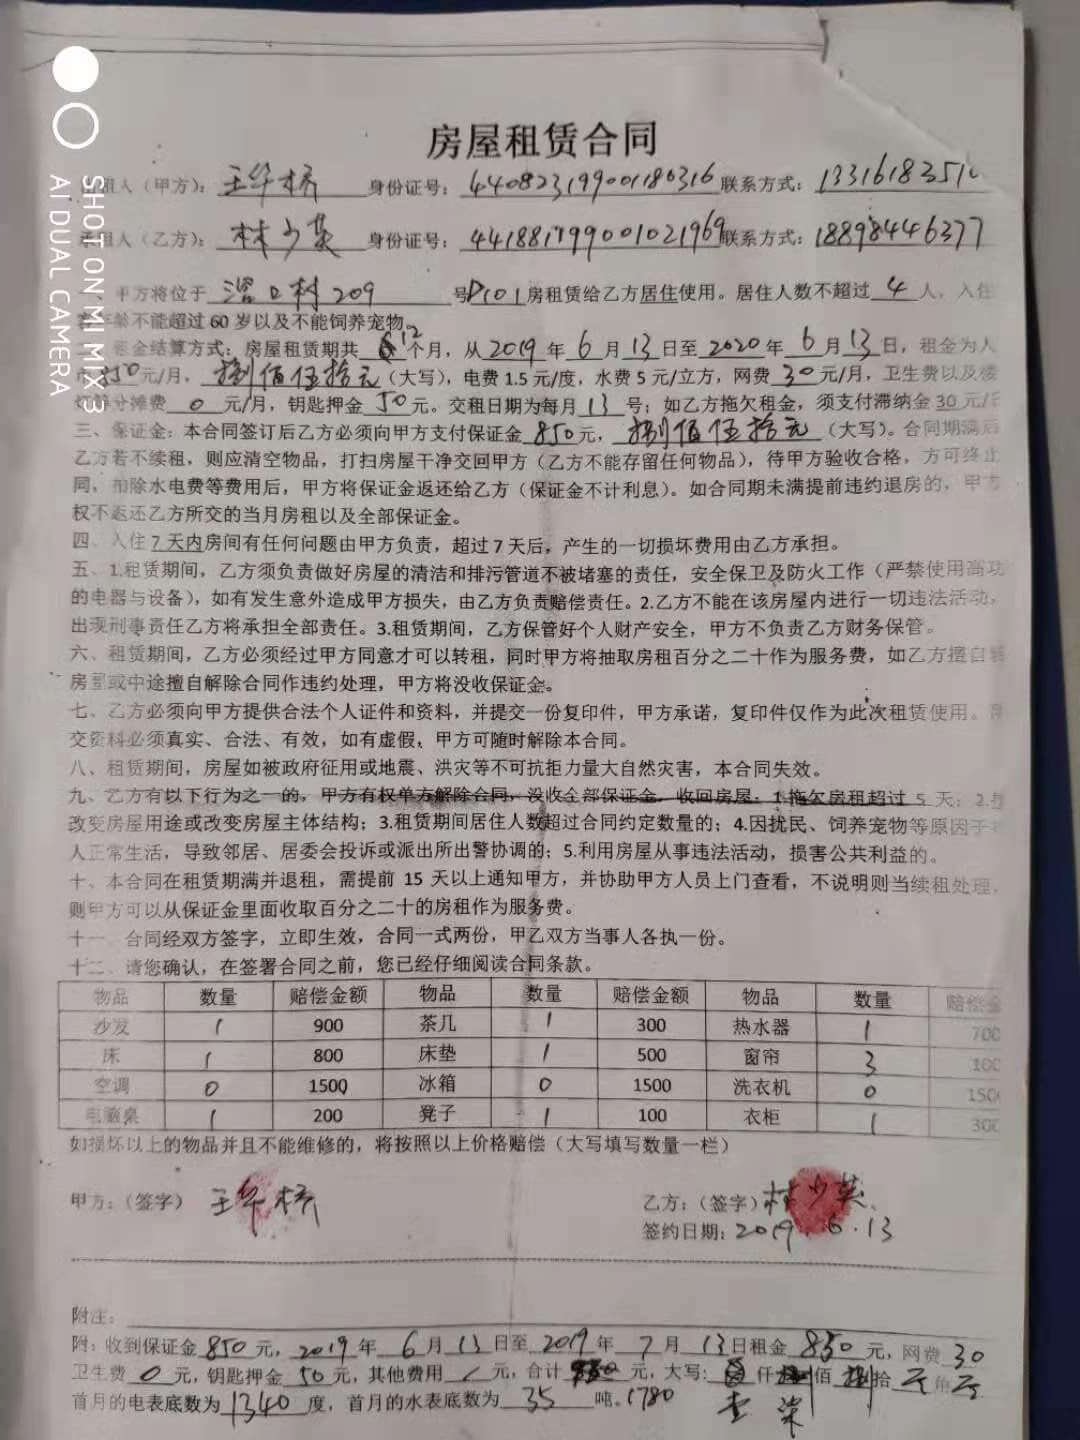 房屋租赁合同
出租人（甲方）：王华桥 身份证号：440823199001180316 联系方式：1331618351
承租人（乙方）：林少英 身份证号：441881199001021969 联系方式：18898446377
一、甲方将位于 溶口村209 号D101房租赁给乙方居住使用。居住人数不超过 4 人，入住
客年龄不能超过 60 岁以及不能饲养宠物。
二、租金结算方式：房屋租赁期共 12 个月，从 2019 年 6 月 13 日至 2020 年 6 月 13 日，租金为人
币 850 元/月，捌佰伍拾元（大写），电费 1.5 元/度，水费 5 元/立方，网费 30 元/月，卫生费以及楼
灯等分摊费 0 元/月，钥匙押金 50 元。交租日期为每月 13 号；如乙方拖欠租金，须支付滞纳金 30 元/
三、保证金：本合同签订后乙方必须向甲方支付保证金 850 元，捌佰伍拾元（大写）。合同期满后
乙方若不续租，则应清空物品，打扫房屋干净交回甲方（乙方不能存留任何物品），待甲方验收合格，方可终止
同，扣除水电费等费用后，甲方将保证金返还给乙方（保证金不计利息）。如合同期未满提前违约退房的，甲方
权不返还乙方所交的当月房租以及全部保证金。
四、入住 7 天内房间有任何问题由甲方负责，超过 7 天后，产生的一切损坏费用由乙方承担。
五、1.租赁期间，乙方须负责做好房屋的清洁和排污管道不被堵塞的责任，安全保卫及防火工作（严禁使用高功
的电器与设备），如有发生意外造成甲方损失，由乙方负责赔偿责任。2.乙方不能在该房屋内进行一切违法活动，
出现刑事责任乙方将承担全部责任。3.租赁期间，乙方保管好个人财产安全，甲方不负责乙方财务保管。
六、租赁期间，乙方必须经过甲方同意才可以转租，同时甲方将抽取房租百分之二十作为服务费，如乙方擅自转
房屋或中途擅自解除合同作违约处理，甲方将没收保证金。
七、乙方必须向甲方提供合法个人证件和资料，并提交一份复印件，甲方承诺，复印件仅作为此次租赁使用。所
交资料必须真实、合法、有效，如有虚假，甲方可随时解除本合同。
八、租赁期间，房屋如被政府征用或地震、洪灾等不可抗拒力量大自然灾害，本合同失效。
九、乙方有以下行为之一的，甲方有权单方解除合同，没收全部保证金，收回房屋：1.拖欠房租超过 5 天；2.擅
改变房屋用途或改变房屋主体结构；3.租赁期间居住人数超过合同约定数量的；4.因扰民、饲养宠物等原因干
人正常生活，导致邻居、居委会投诉或派出所出警协调的；5.利用房屋从事违法活动，损害公共利益的。
十、本合同在租赁期满并退租，需提前 15 天以上通知甲方，并协助甲方人员上门查看，不说明则当续租处理，
则甲方可以从保证金里面收取百分之二十的房租作为服务费。
十一、合同经双方签字，立即生效，合同一式两份，甲乙双方当事人各执一份。
十二、请您确认，在签署合同之前，您已经仔细阅读合同条款。
物品 数量 赔偿金额 物品 数量 赔偿金额 物品 数量 赔偿金
沙发 1 900 茶几 1 300 热水器 1 700
床 1 800 床垫 1 500 窗帘 3 100
空调 0 1500 冰箱 0 1500 洗衣机 0 150
电脑桌 1 200 凳子 1 100 衣柜 1 300
如损坏以上的物品并且不能维修的，将按照以上价格赔偿（大写填写数量一栏）
甲方：（签字） 王华桥 乙方：（签字） 林少英
签约日期：2019.6.13
附注：
附：收到保证金 850 元，2019 年 6 月 13 日至 2019 年 7 月 13 日租金 850 元，网费 30
卫生费 0 元，钥匙押金 50 元，其他费用 / 元，合计 元，大写： 仟 佰 捌 拾 元 角
壹 柒
首月的电表底数为 1340 度，首月的水表底数为 35 吨。1780
SHOT ON MI MIX 3
AI DUAL CAMERA